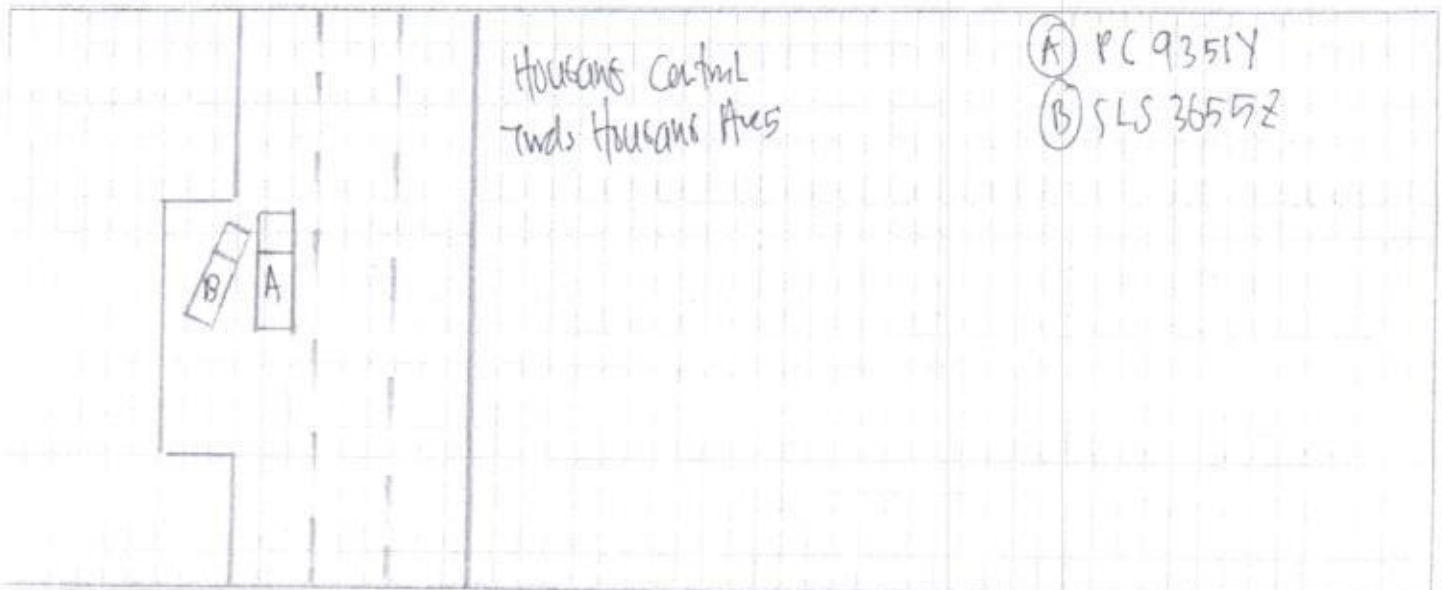 Hougang Central
Twds Hougang Ave5
(A) PC 9351Y
(B) SLS 3655Z
B A